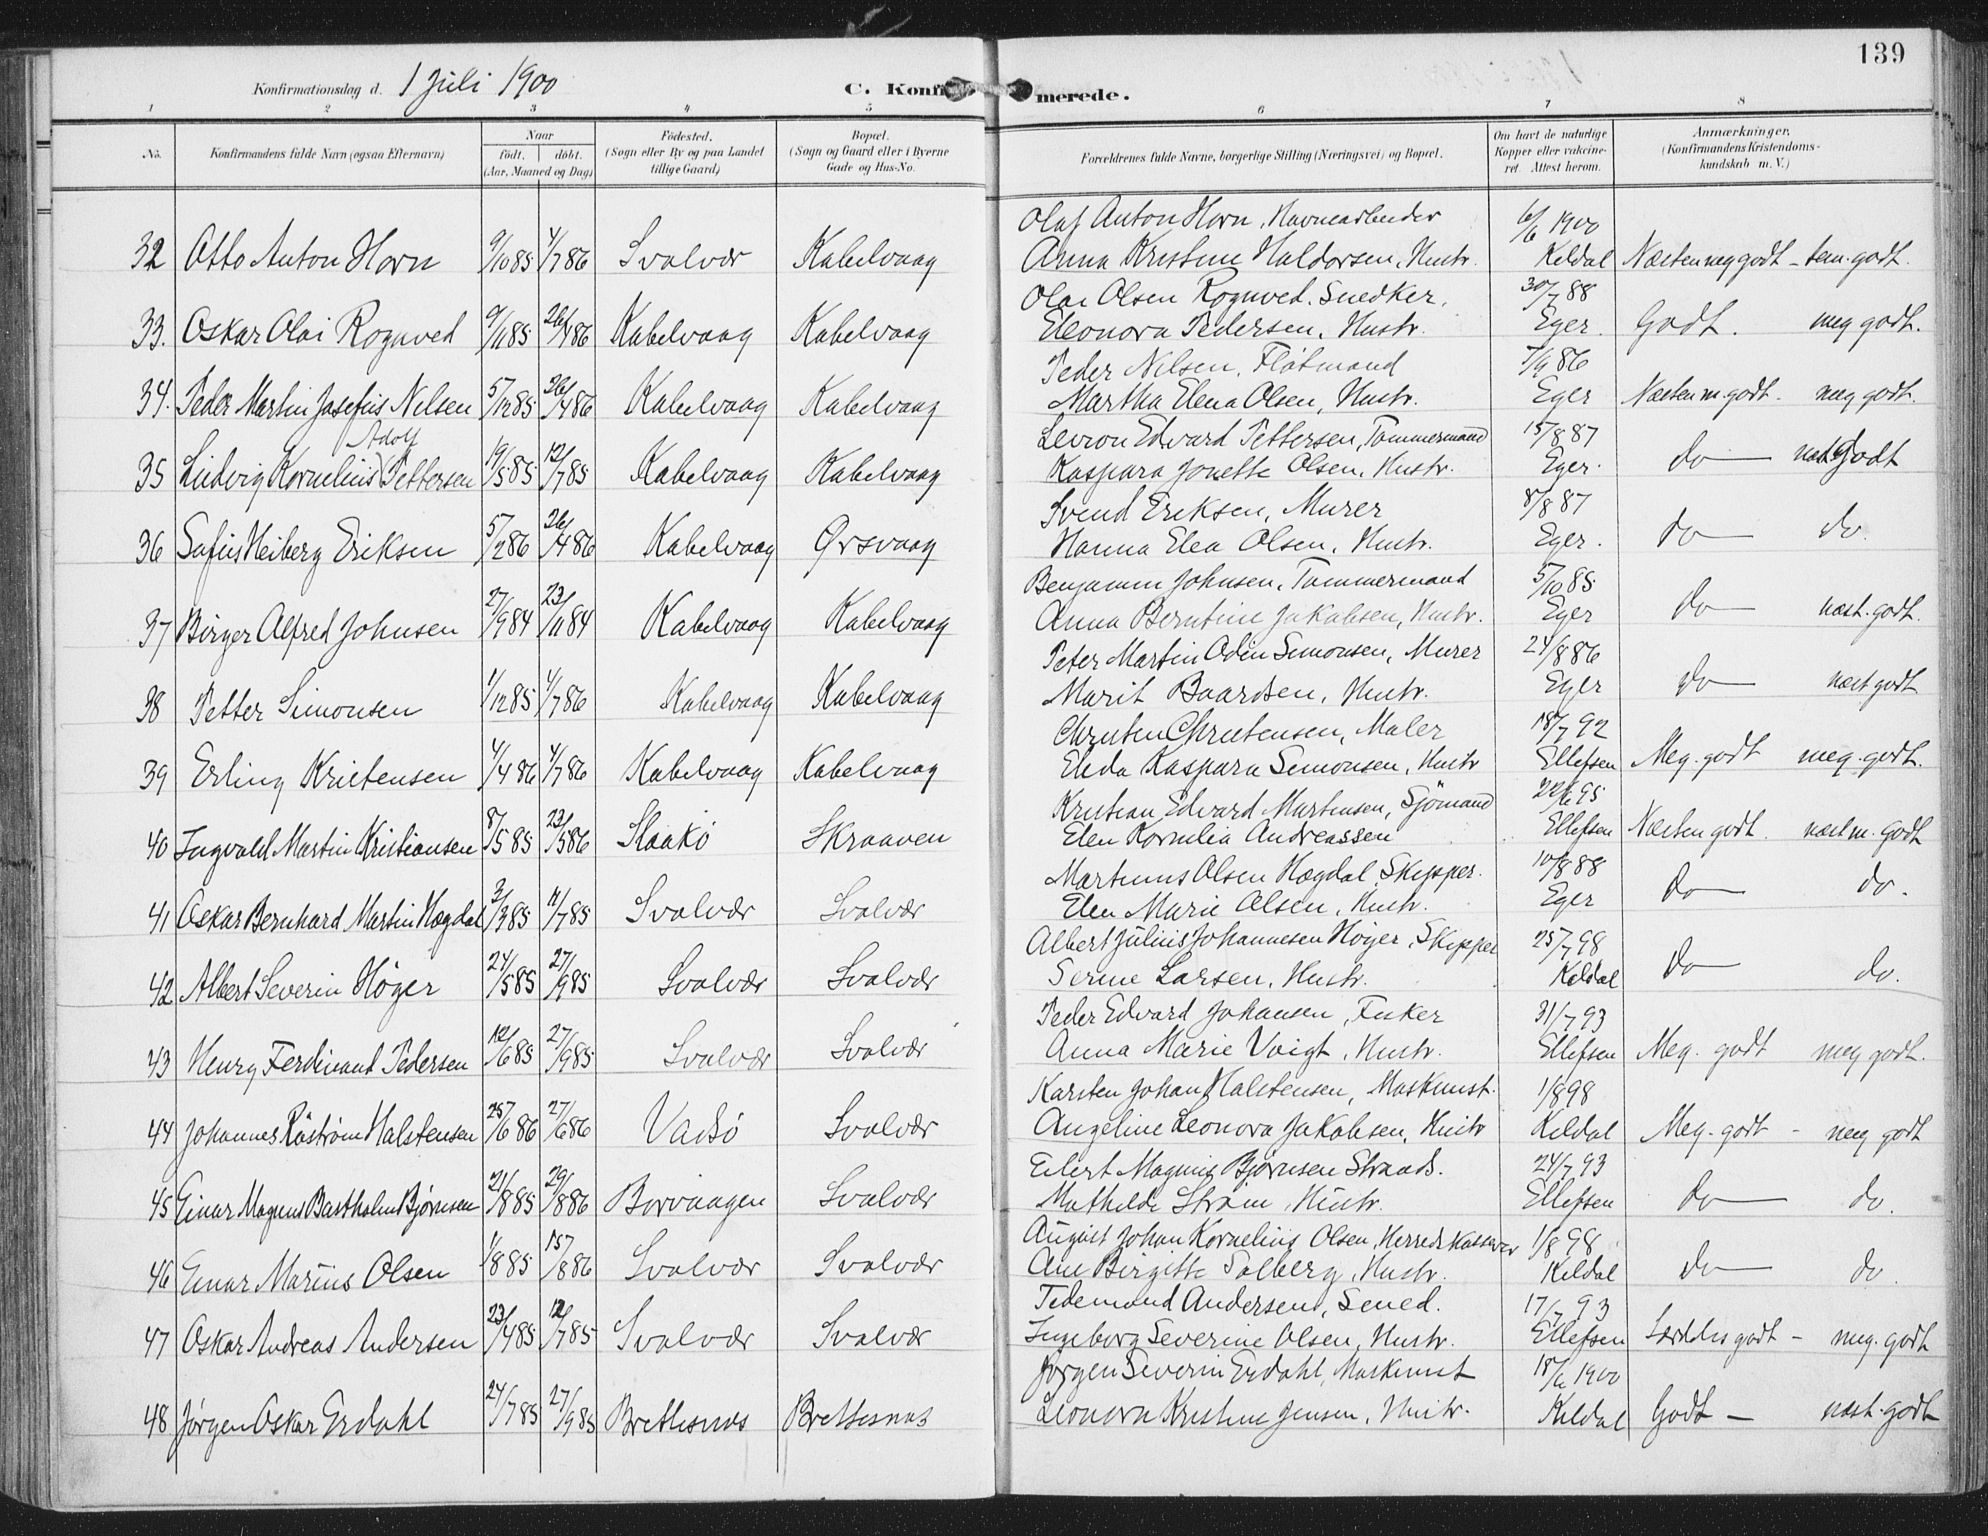 139
Konfirmationsdag d. 1 Juli 1900
C. Konfirmerede.
1 2 3 4 5 6 7 8
No.
Konfirmandens fulde Navn (ogsaa Efternavn)
Naar
født. døbt.
(Aar, Maaned og Dag)
Fødested.
(Sogn eller By og paa Landet
tillige Gaard)
Bopæl.
(Sogn og Gaard eller i Byerne
Gade og Hus-No.
Forældrenes fulde Navne, borgerlige Stilling (Næringsvei) og Bopæl.
Om havt de naturlige
Kopper eller vakcine-
ret. Attest herom.
Anmærkninger.
(Konfirmandens Kristendoms-
kundskab m. V.)
Olaf Anton Horn, Havnearbeider 6/6 1900
32 Otto Anton Horn 9/10 85 4/7 86 Svolvær Kabelvaag Anna Kristine Haldorsen, Hustr. Keldal Næsten meg godt - tem. godt.
Olai Olsen Rognved. Snedker. 30/7 88
33. Oskar Olai Rognved 9/11 85 26/4 86 Kabelvaag Kabelvaag Eleonora Pedersen, Hustr. Eger. Godt. meg godt.
Peder Nilsen, Fløtmand 7/9 86
34. Peder Martin Josefus Nilsen 5/12 85 26/4 86 Kabelvaag Kabelvaag Martha Elena Olsen, Hustr. Eger Næsten m. godt. meg godt.
Adolf
Edvard Pettersen, Tømmermand 15/8 87
35 Ludvig Kornelius Pettersen 19/5 85 12/7 85 Kabelvaag Kabelvaag Kaspara Jonette Olsen, Hustr. Eger. do Godt
Svend Eriksen, Murer 8/8 87
36 Sofus Heiberg Eriksen 5/2 86 26/4 86 Kabelvaag Ørsvaag Hanna Elea Olsen, Hustr. Eger. do do.
Benjamin Johnsen, Tømmermand 5/10 85
37 Birger Alfred Johnsen 27/9 84 23/11 84 Kabelvaag Kabelvaag Anna Berntine Jakobsen, Hustr. Eger do næst. godt.
Peter Martin Odin Simonsen, Murer 24/8 86
38 Petter Simonsen 1/12 85 4/7 86 Kabelvaag Kabelvaag Marit Baardsen, Hustr. Eger do næst godt
Christen Christensen, Maler 18/7 92
39 Erling Kristensen 4/4 86 4/7 86 Kabelvaag Kabelvaag Elida Kaspara Simonsen, Hustr Ellefsen Meg. godt meg. godt.
Kristian Edvard Martinsen, Sjömand 22/6 95
40 Ingvald Martin Kristiansen 8/5 85 23/5 86 Skraaven Elen Kornelia Andreassen Ellefsen Næsten godt. næst m. godt
Martinus Olsen Hægdal, Skipper. 10/8 88
41 Oskar Bernhard Martin Hægdal 3/3 85 Svolvær Svolvær Elen Marie Olsen, Hustr. Eger do do.
Albert Julius Johannesen Höger, Skipper 25/7 98
42 Albert Severin Höger 24/5 85 27/9 85 Svolvær Svolvær Serine Larsen, Hustr. Keldal do do.
Peder Edvard Johansen, Fisker 31/7 93
43 Henry Ferdinant Pedersen 12/6 85 27/9 85 Svolvær Svolvær Anna Marie Voigt, Hustr. Ellefsen Meg. godt meg godt.
Karsten Johan Halstensen, Maskinist. 1/8 98
44 Johannes Råstrøm Halstensen 25/6 86 27/6 86 Vadsö Svolvær Angeline Leonora Jakobsen, Hustr Keldal Meg. godt - meg godt
Eilert Magnus Bjørnsen Strands. 24/7 93
45 Einar Magnus Bartholm Bjørnsen 21/8 85 29/8 86 Borvaagen Svolvær Mathilde Strøm, Hustr. Ellefsen do do.
August Johan Kornelius Olsen, Herredskasserer 1/8 98
46 Einar Marius Olsen 1/8 85 15/8 86 Svolvær Svolvær Ane Birgitte Solberg, Hustr. Keldal do do
Tidemand Andersen, Smed. 17/7 93
47 Oskar Andreas Andersen 23/4 85 12/7 85 Svolvær Svolvær Ingeborg Severine Olsen, Hustr. Ellefsen Særdeles godt - meg. godt
Jørgen Severin Erdahl, Maskinist 18/6 1900
48 Jørgen Oskar Erdahl 24/7 85 27/9 85 Brettesnæs Brettesnæs Leonora Kristine Jensen, Hustr. Keldal Godt - næst. godt